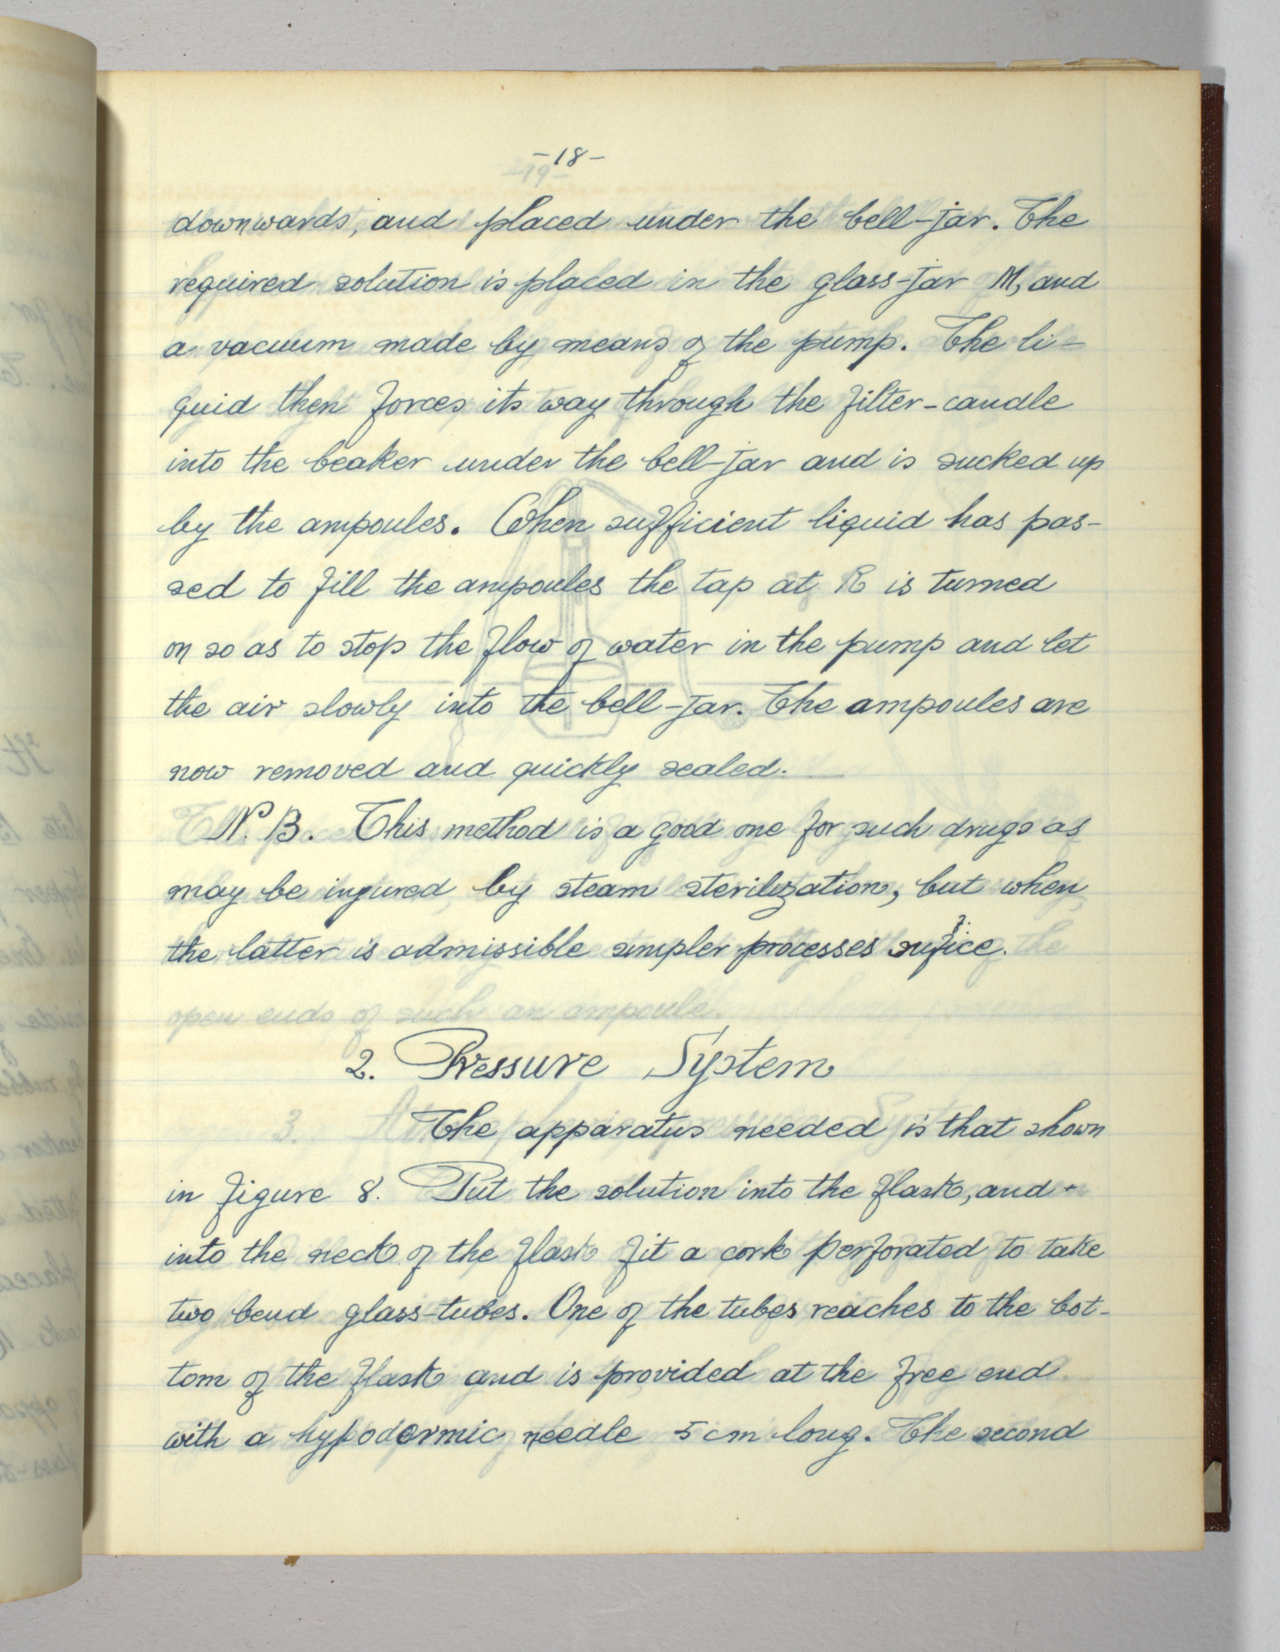 -18-
downwards, and placed under the bell-jar. The
required solution is placed in the glass-jar M, and
a vacuum made by means of the pump. The li-
quid then forces its way through the filter-candle
into the beaker under the bell-jar and is sucked up
by the ampoules. When sufficient liquid has pas-
sed to fill the ampoules the tap at R is turned
on so as to stop the flow of water in the pump and let
the air slowly into the bell-jar. The ampoules are
now removed and quickly sealed.
N. B. This method is a good one for such drugs as
may be injured by steam sterilization, but when
the latter is admissible simpler processes suffice.
2. Pressure System
The apparatus needed is that shown
in figure 8. Put the solution into the flask, and
into the neck of the flask fit a cork perforated to take
two bend glass-tubes. One of the tubes reaches to the bot-
tom of the flask and is provided at the free end
with a hypodermic needle 5 cm long. The second